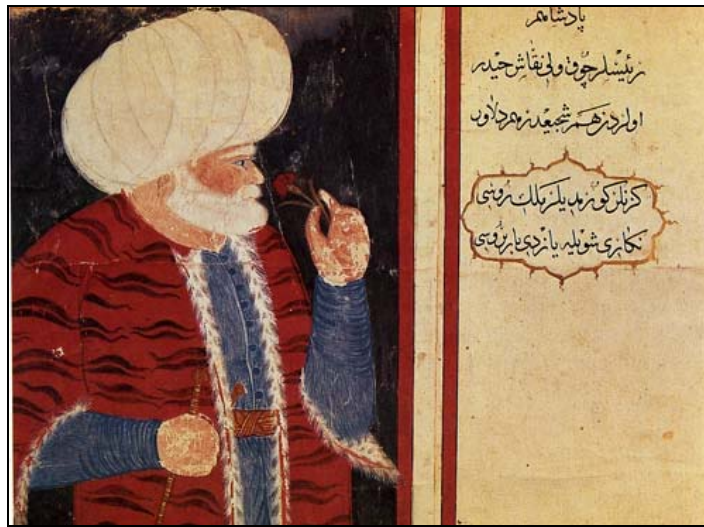 پادشاهم
رئیسلر چوق ولی نقاش حیدر
اولردر هم شجیعدر هم دلاور
کزنلر کورمدیلر ملک روسی
نکاری شویله یازدی باربروسی